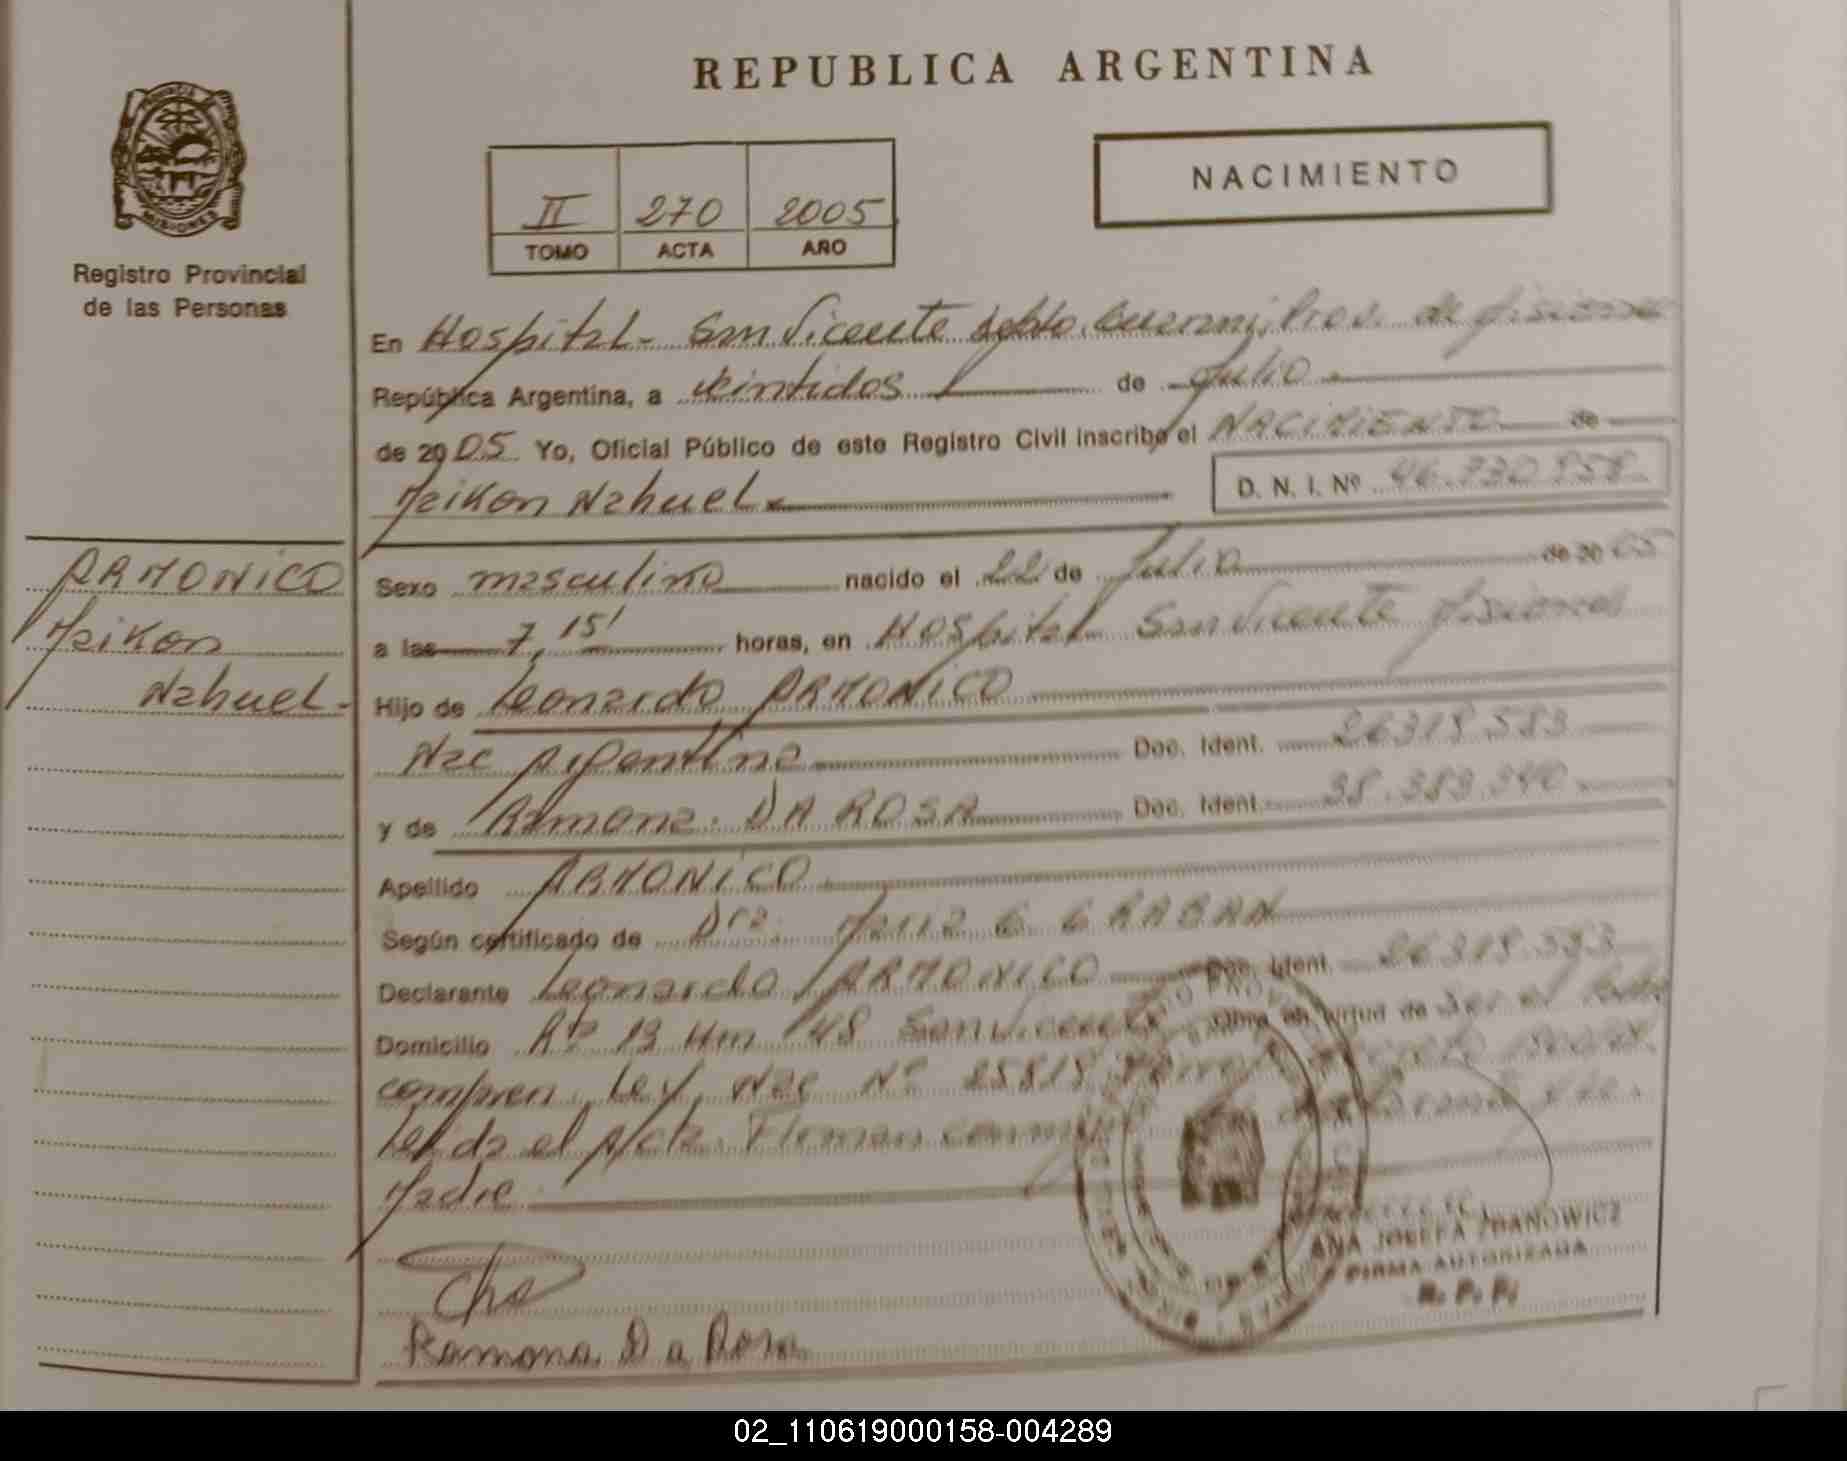 REPUBLICA ARGENTINA
PROVINCIA DE
MISIONES
Registro Provincial
de las Personas
II 270 2005
TOMO ACTA AÑO
NACIMIENTO
En Hospital - San Vicente Depto. Guarani, Prov. de Misiones
República Argentina, a veintidos de Julio
de 2005 Yo, Oficial Público de este Registro Civil inscribo el NACIMIENTO de
Maikon Nahuel D. N. I. Nº 46.730.858
ARMONICO
Maikon
Nahuel-
Sexo masculino nacido el 22 de Julio de 2005
a las 7,15' horas, en Hospital San Vicente Misiones
Hijo de Leonardo ARMONICO
Nac Argentina Doc. Ident. 26318.583
y de Ramona DA ROSA Doc. Ident. 38.383.340
Apellido ARMONICO
Según certificado de Dra. Maria G. GRABAN
Declarante Leonardo ARMONICO Doc. Ident. 26318.583
Domicilio Rta 13 Km 48 San Vicente Obra en virtud de ser el Padre
compren. Ley Nac Nº 25818
Leida el Acta Firman conmigo declarante y la
Madre
Ramona Da Rosa
ANA JOSEFA ZDANOWICZ
FIRMA AUTORIZADA
R. P. P.
02_110619000158-004289